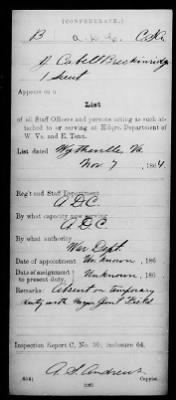 (CONFEDERATE.)
B
J. Cabell Breckinridge
1 Lieut
Appears on a
List
of all Staff Officers and persons acting as such attached to or serving at Hdqrs. Department of W. Va. and E. Tenn.
List dated Wytheville, Va.
Nov. 7, 1864.
Reg't and Staff Department
A.D.C.
By what capacity now serving
A.D.C.
By what authority
War Dept.
Date of appointment Unknown, 186
Date of assignment to present duty, Unknown, 186
Remarks: Absent on temporary
duty with Major Genl
Inspection Report C, No. 30; inclosure 64.
A. S. Andrews
Copyist.